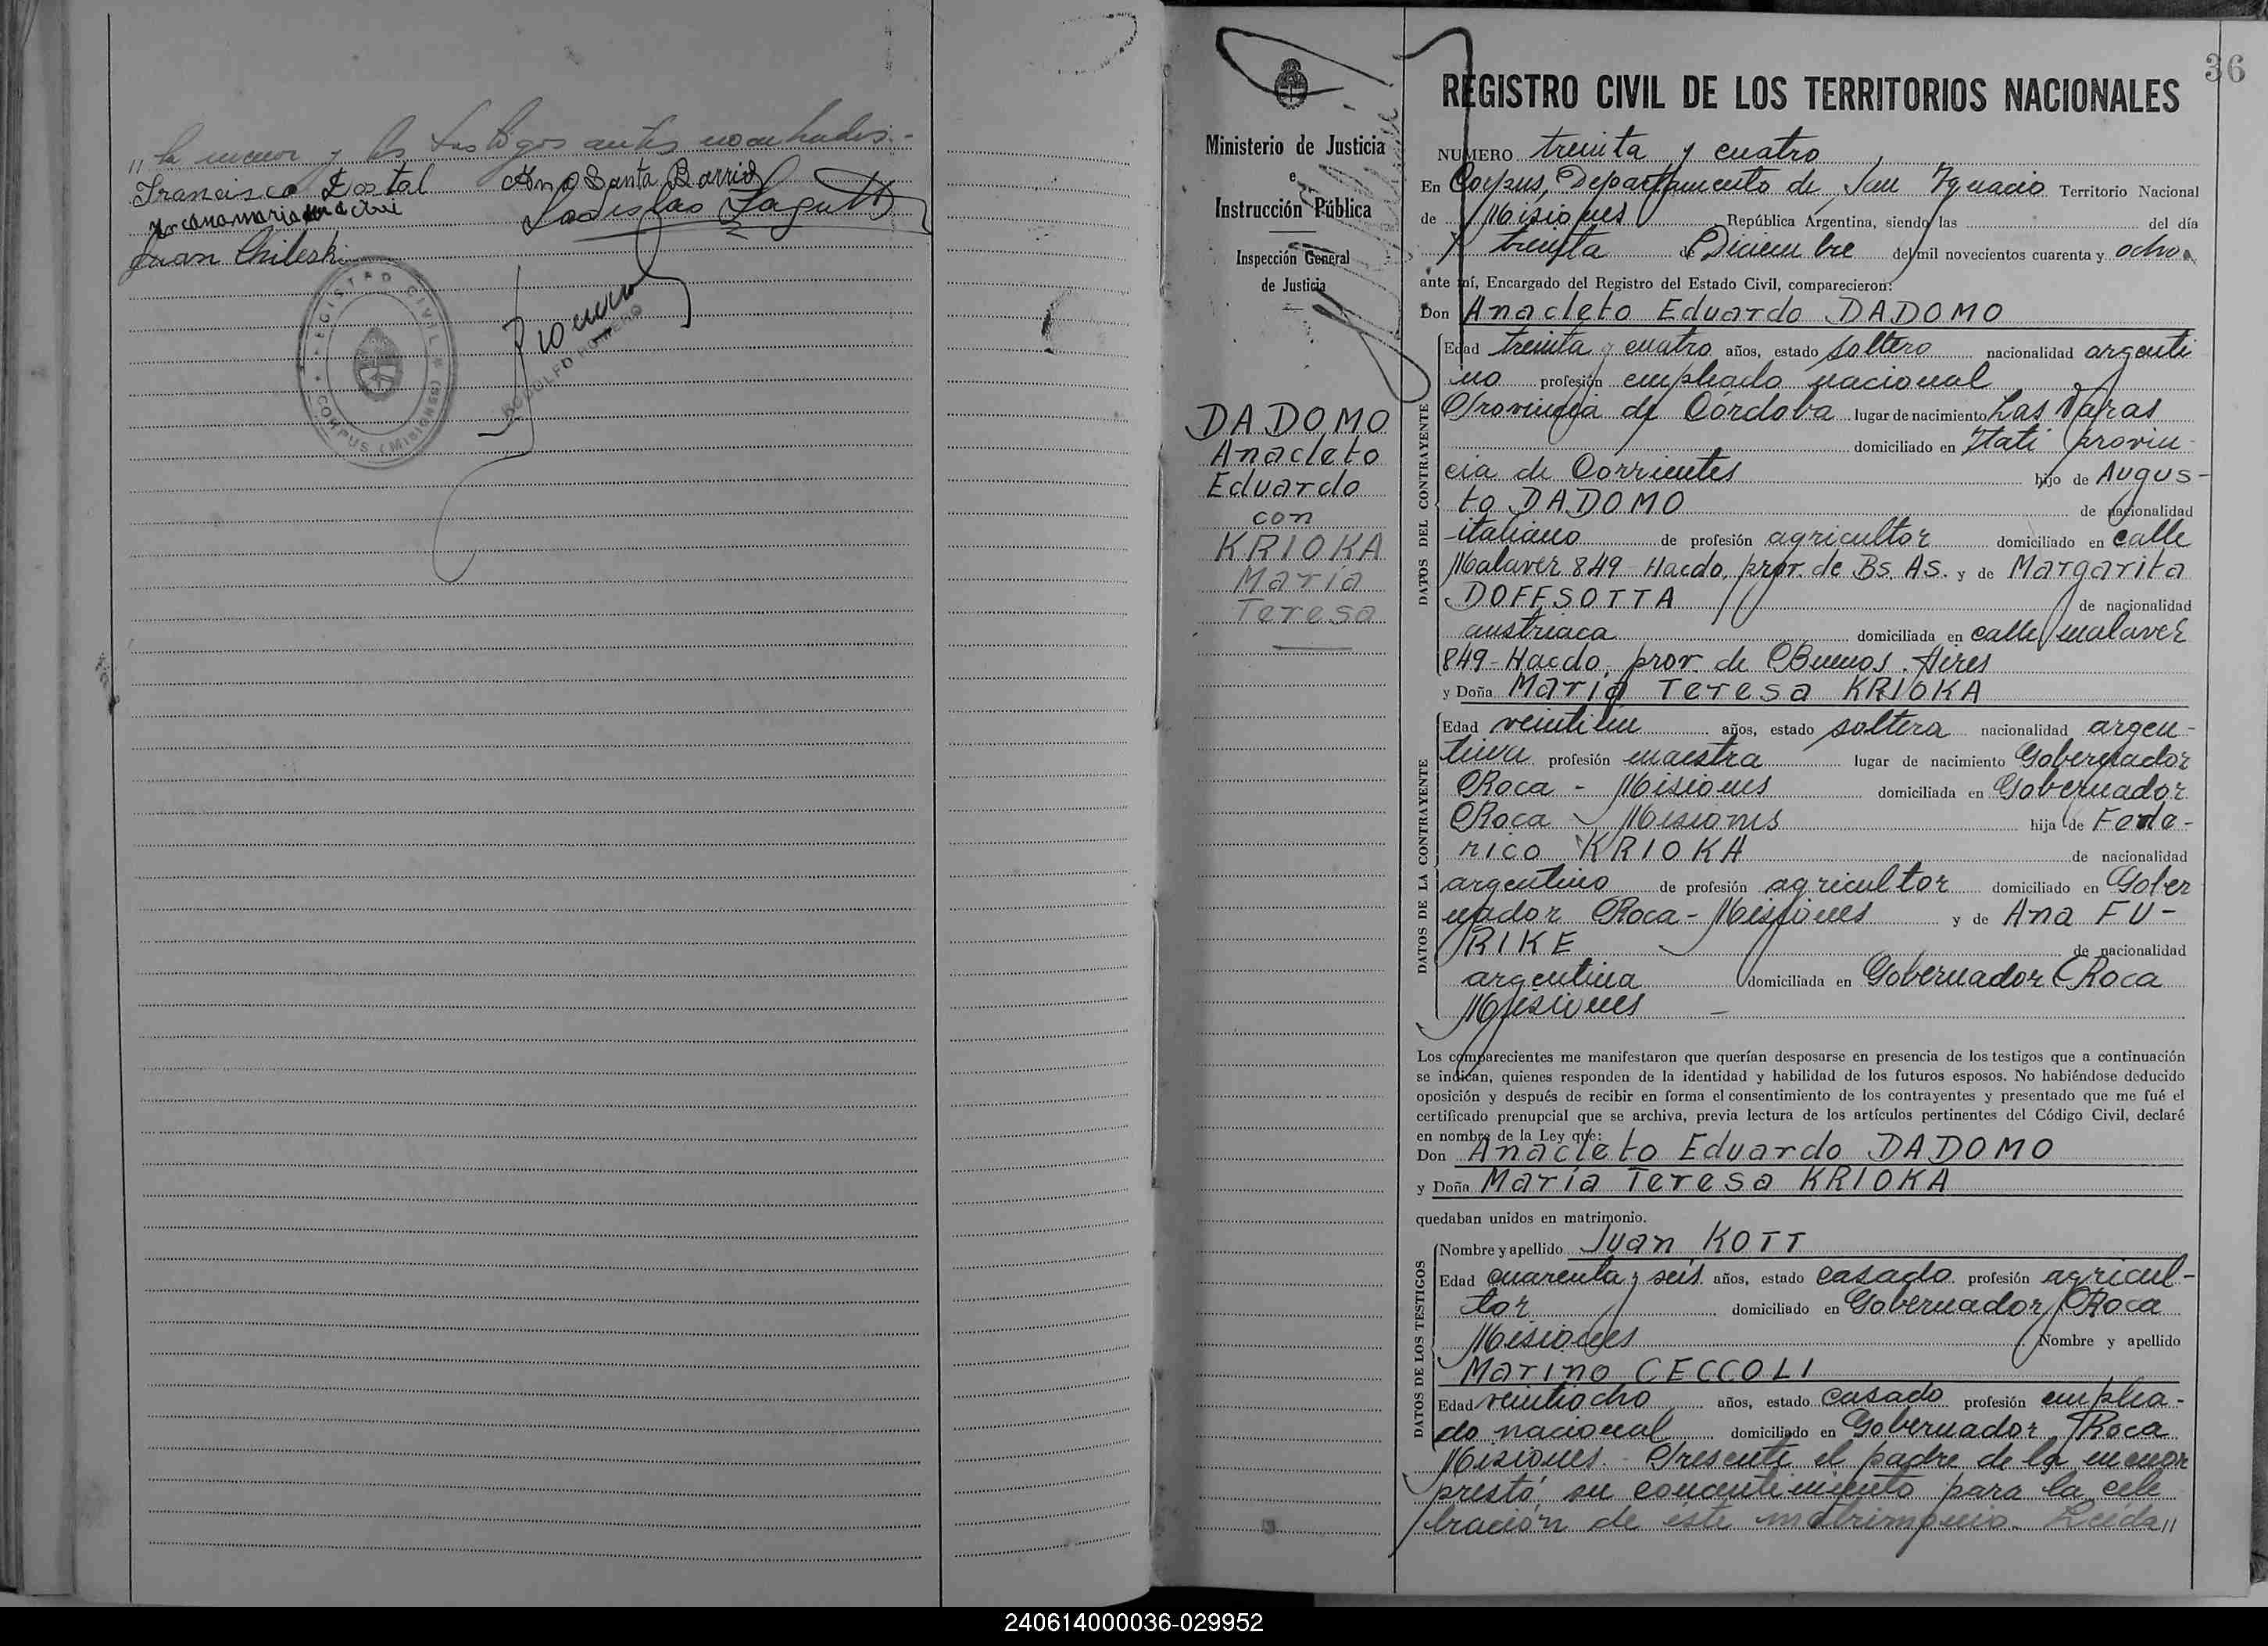 " la menor y los testigos antes nombrados.-
Francisco Dostal Ana Santa Barrio
Ladislao
Juan Chileski
REGISTRO CIVIL
CORPUS (MISIONES)
RODOLFO ROMERO
36
Ministerio de Justicia
e
Instrucción Pública
Inspección General
de Justicia
DADOMO
Anacleto
Eduardo
con
KRIOKA
María
Teresa
REGISTRO CIVIL DE LOS TERRITORIOS NACIONALES
NUMERO treinta y cuatro
En Corpus, Departamento de San Ygnacio Territorio Nacional
de Misiones República Argentina, siendo las del día
treinta de Diciembre del mil novecientos cuarenta y ocho
ante mí, Encargado del Registro del Estado Civil, comparecieron:
Don Anacleto Eduardo DADOMO
DATOS DEL CONTRAYENTE
Edad treinta y cuatro años, estado soltero nacionalidad argenti
no profesión empleado nacional
Provincia de Córdoba lugar de nacimiento Las Varas
domiciliado en Itatí provin-
cia de Corrientes hijo de Augus-
to DADOMO de nacionalidad
italiano de profesión agricultor domiciliado en calle
Malaver 849 Haedo, prov. de Bs. As. y de Margarita
DOFFSOTTA de nacionalidad
austriaca domiciliada en calle malaver
849-Haedo, prov. de Buenos Aires
y Doña María Teresa KRIOKA
DATOS DE LA CONTRAYENTE
Edad veintiun años, estado soltera nacionalidad argen-
tina profesión maestra lugar de nacimiento Gobernador
Roca - Misiones domiciliada en Gobernador
Roca - Misiones hija de Fede-
rico KRIOKA de nacionalidad
argentino de profesión agricultor domiciliado en Gober
nador Roca - Misiones y de Ana FU-
RIKE de nacionalidad
argentina domiciliada en Gobernador Roca
Misiones -
Los comparecientes me manifestaron que querían desposarse en presencia de los testigos que a continuación
se indican, quienes responden de la identidad y habilidad de los futuros esposos. No habiéndose deducido
oposición y después de recibir en forma el consentimiento de los contrayentes y presentado que me fué el
certificado prenupcial que se archiva, previa lectura de los artículos pertinentes del Código Civil, declaré
en nombre de la Ley que:
Don Anacleto Eduardo DADOMO
y Doña María Teresa KRIOKA
quedaban unidos en matrimonio.
DATOS DE LOS TESTIGOS
Nombre y apellido Juan KOTT
Edad cuarenta y seis años, estado casado profesión agricul-
tor domiciliado en Gobernador Roca
Misiones Nombre y apellido
Marino CECCOLI
Edad veintiocho años, estado casado profesión emplea-
do nacional domiciliado en Gobernador Roca
Misiones. - Presente el padre de la menor
prestó su concentimiento para la cele
bración de éste matrimonio. Leida "
240614000036-029952